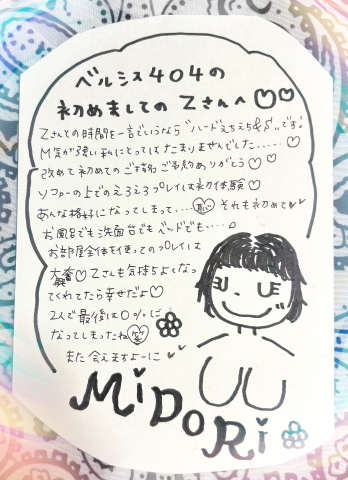 ベルシス404の
初めましてのZさんへ♡♡
Zさんとの時間を一言でいうなら"ハードえちえち&S"です!
M気が強い私にとってはたまりませんでした.....♡
改めて初めてのご指名ご予約ありがとう♡♡
ソファーの上でのえろえろプレイは初体験♡
あんな格好になってしまって....それも初めて
お風呂でも洗面台でもベッドでも....
お部屋全体を使ってのプレイは
大興奮♡Zさんも気持ちよくなっ
てくれてたら幸せだよ♡
2人で最後は0%に
なってしまったね(笑)
また会えますよーに
MiDoRi